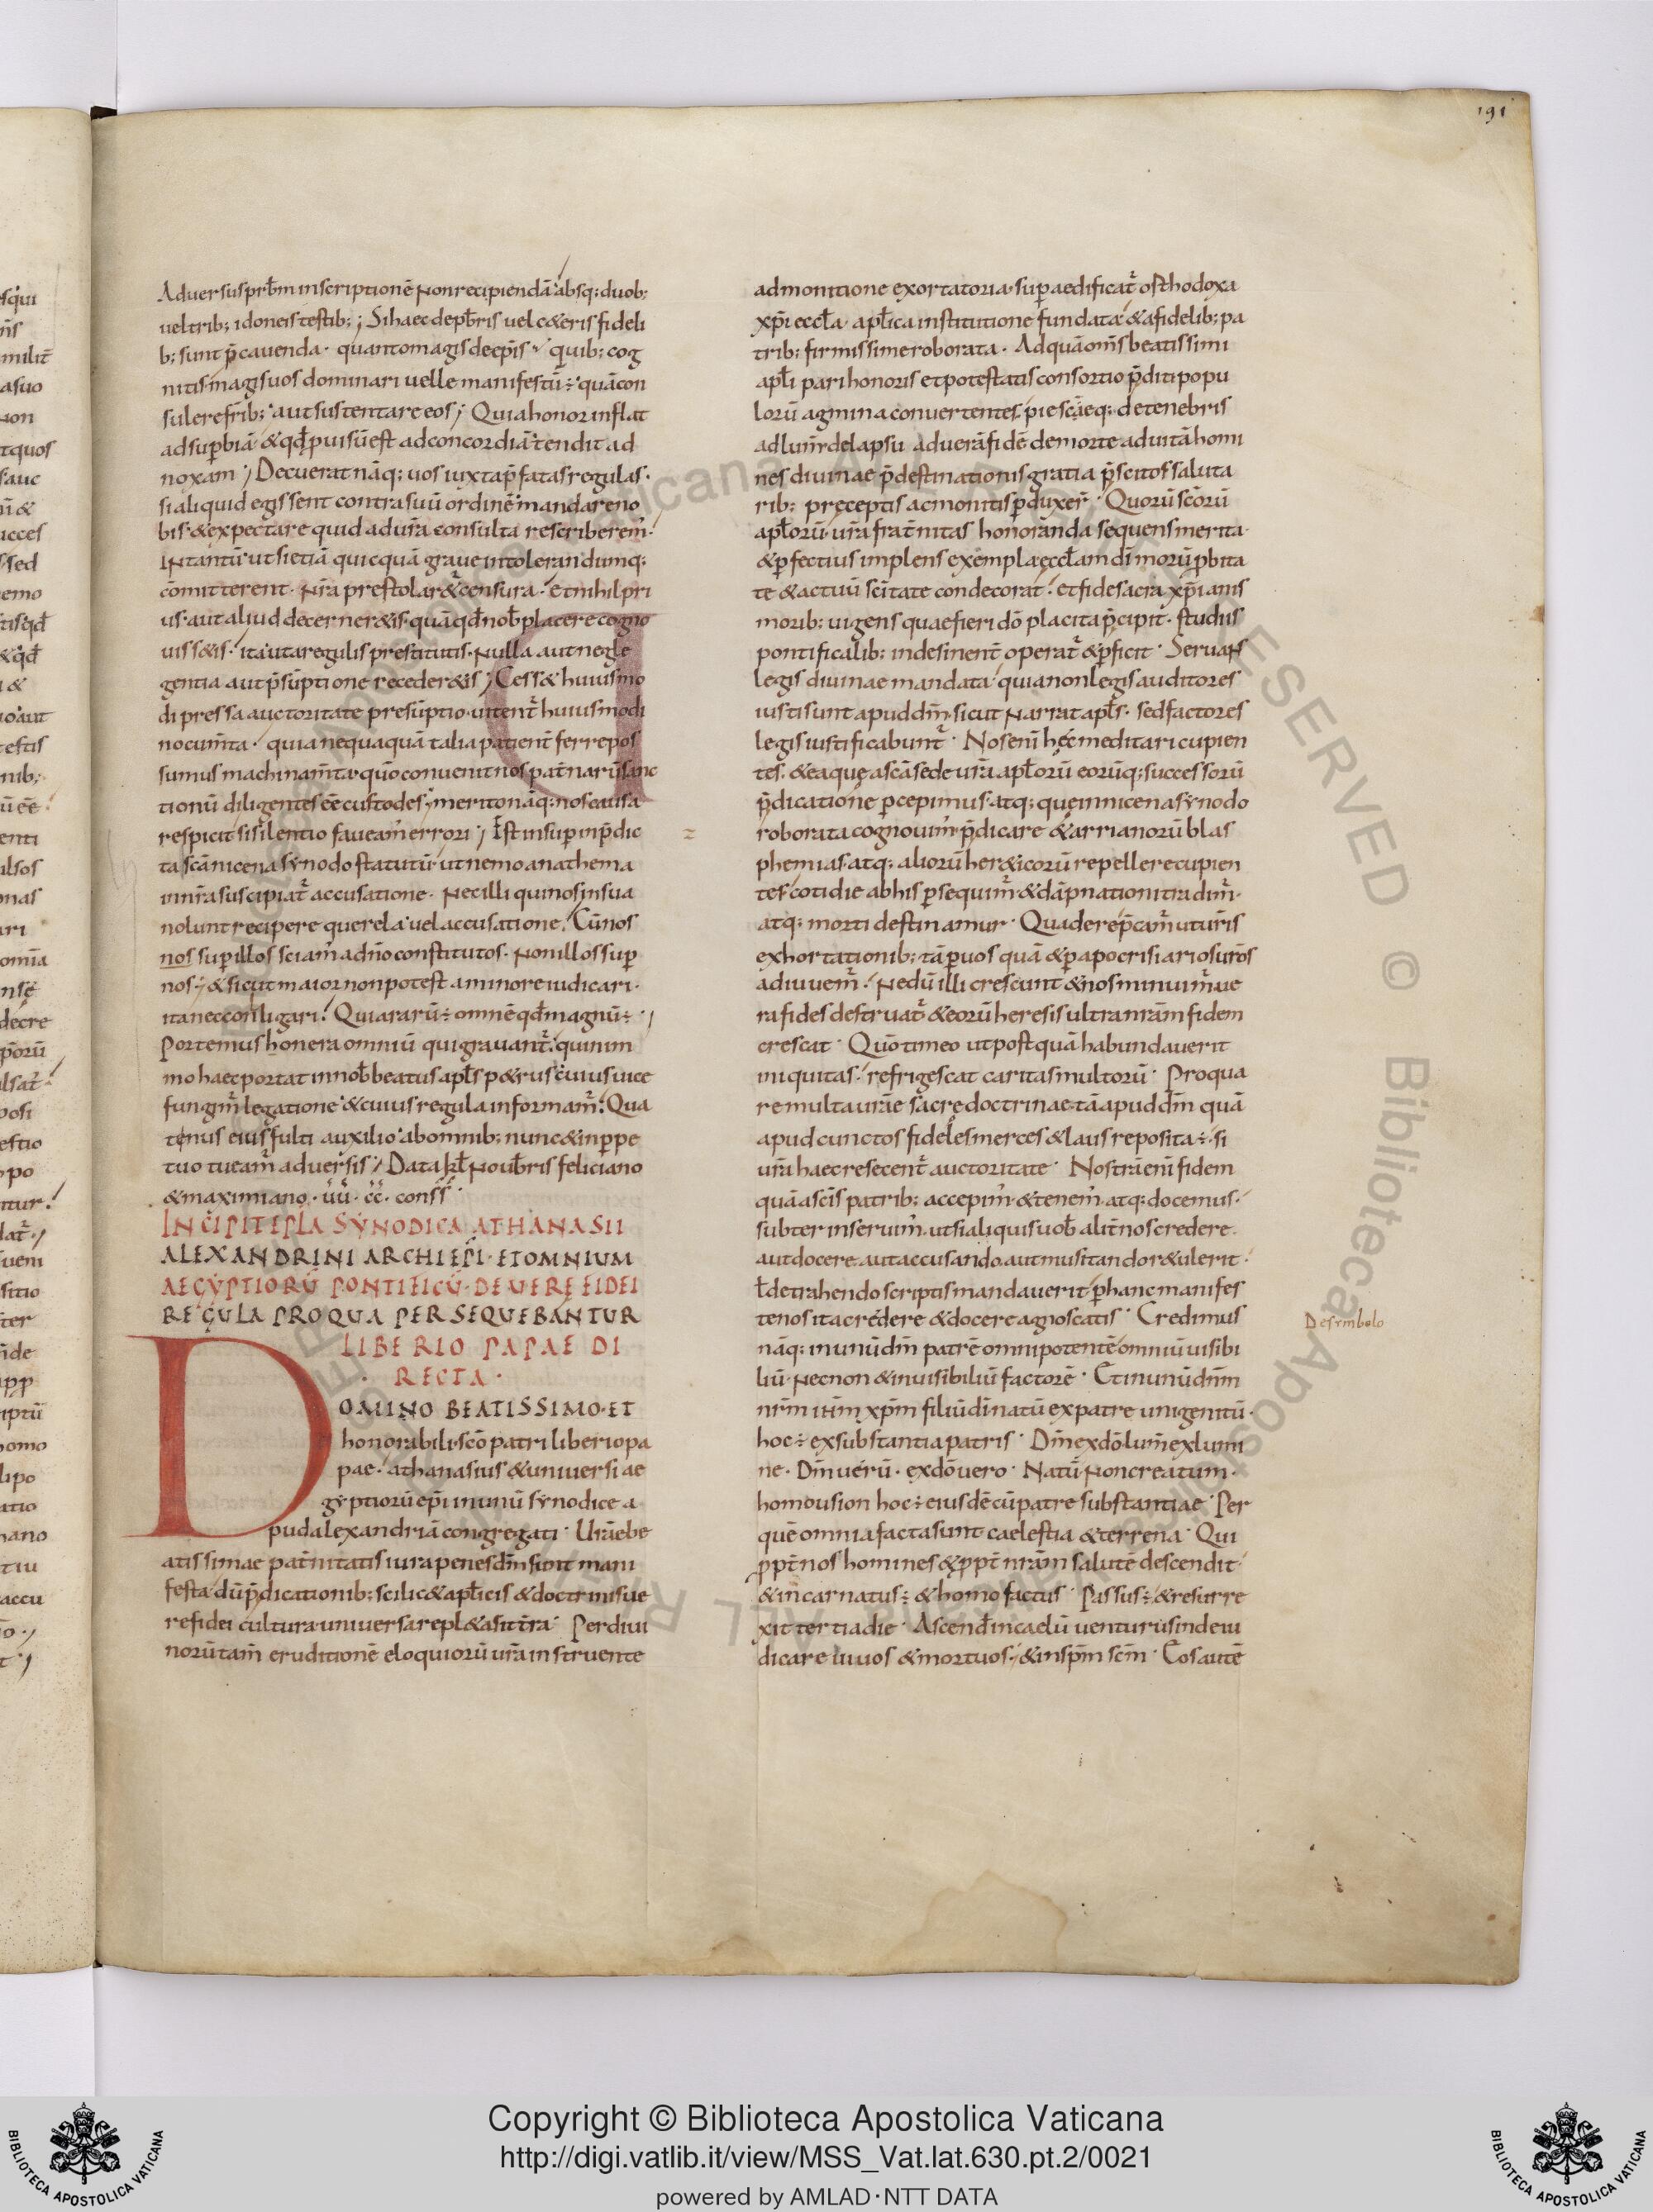 191
Aduersus prbm inscriptionē Non recipiendā absq; duob;
uel trib; idoneis testib; ; Si haec de pbris uel ceteris fideli
b; sunt p̄cauenda · quanto magis de ep̄is · quib; cog
nitis magis uos dominari uelle manifestū ÷ quā con
sulere frīb; aut sustentare eos ; Quia honor inflat
ad supbiā · & qđ puisū est ad concordiā tendit ad
noxam ; Decuerat nāq; uos iuxta p̄fatas regulas ·
si aliquid egissent contra suū ordinē mandare no
bis · & expectare quid ad ur̄a consulta rescriberem̄ ·
IN tantū ut si etiā quicquā graue intolerandumq;
cōmitterent · Nr̄a prestolar& censura · et nihil pri
us · aut aliud decerner&is · quā qđ nob placere cogno
uiss&is · ita ut a regulis prestitutis · Nulla aut negle
gentia aut p̄sūptione receder&is ; Cess& huiusmo
di pressa auctoritate presūptio · uitent huiusmodi
nocum̄ta · quia nequaquā talia patient ferre pos
sumus machinam̄ta · quō conuenit nos pat̄narū sanc
tionū diligentes eē custodes ; merito nāq; nos causa
respicit si silentio faueam̄ errori ; Est insup in p̄dic
ta scā nicena synodo statutū · ut nemo anathema
in nr̄a suscipiat accusatione · Nec illi qui nos in sua
nolunt recipere querela uel accusatione · Cū nos
nos sup illos sciam̄ a dn̄o constitutos · Non illos sup
nos ; & sicut maior non potest a minore iudicari ·
ita nec conligari · Quia rarū ÷ omnē qđ magnū ÷ · ;
Portemus honera omniū qui grauant · quinim
mo haec portat in nob beatus apls p&rus cuius uice
fungim̄ legatione · & cuius regula informam̄ · Qua
tenus eius fulti auxilio · ab omnib; nunc & in ppe
tuo tueam̄ aduersis ; Data kl Noubris feliciano
& maximiano · uū · cc̄ · conss̄ ·
INCIPIT EPLA SYNODICA ATHANASII
ALEXANDRINI ARCHIEPI · ET OMNIUM
AEGYPTIORŪ PONTIFICŪ · DE UERE FIDEI
REGULA PRO QUA PERSEQUEBANTUR
LIBERIO PAPAE DI
· RECTA ·
DOMINO BEATISSIMO · ET
honorabili · scō patri liberio pa
pae · athanasius & uniuersi ae
gyptiorū ep̄i in unū synodice a
pud alexandriā congregati · Ur̄ae be
atissimae pat̄nitatis iura penes dm̄ sunt mani
festa · dū p̄dicationib; scilic& aplicis & doctrinis ue
re fidei cultura uniuersa repl&a sit t̄ra · Per diui
norū tam̄ eruditionē eloquiorū ur̄a instruente
admonitione exortatoria · supaedificat orthodoxa
xp̄i eccla · aplica institutione fundata · & a fidelib; pa
trib; firmissime roborata · Ad quā om̄s beatissimi
apli pari honoris et potestatis consortio p̄diti popu
lorū agmina conuertentes · pie scāeq; de tenebris
ad lum̄ · delapsu ad uerā fidē de morte ad uitā homi
nes diuinae p̄destinationis gratia p̄scitos saluta
rib; pręceptis ac monitis pduxer̄ · Quorū scōrū
aplorū · ur̄a frat̄nitas honoranda sequens merita
& pfectius implens exempla ęcclam dī morū pbita
te & actuū sc̄itate condecorat · et fide sacra xp̄ianis
morib; uigens quae fieri dō placita p̄cipit · studiis
pontificalib; indesinent operat & pficit · SeruaN
legis diuinae mandata · quia non legis auditores
iusti sunt apud dm̄ · sicut Narrat apls · sed factores
legis iustificabunt · Nos enī hęc meditari cupien
tes · & ea quę a scā sede ur̄a aplorū eorūq; successorū
p̄dicatione pcepimus · atq; que in nicena synodo
roborata cognouim̄ · p̄dicare & arrianorū blas
phemias · atq; aliorū her&icorū repellere cupien
tes · cotidie ab his psequim̄ · & dāpnationi tradim̄ ·
atq; morti destinamur · Qua de re p̄cam̄ ut ur̄is
exhortationib; tā puos quā & p apocrisiarios ur̄os
adiuuem̄ · Ne dū illi crescunt & nos minuim̄ ue
ra fides destruat & eorū heresis ultra nr̄am fidem
crescat · Quō timeo ut postquā habundauerit
iniquitas · refrigescat caritas multorū · Proqua
re multa ur̄ae sacrę doctrinae · tā apud dm̄ quā
apud cunctos fideles merces & laus reposita ÷ · si
ur̄a haec resecent auctoritate · Nostrā enī fidem
quā a scīs patrib; accepim̄ · & tenem̄ atq; docemus ·
subter inseruim̄ · ut si aliquis uob alit̄ nos credere ·
aut docere · aut accusando aut musitando r&ulerit ·
ł detrahendo scriptis mandauerit · p hanc manifes
te nos ita credere & docere agnoscatis · Credimus
nāq; in unū dm̄ patrē omnipotentē omniū uisibi
liū · Necnon & inuisibiliū factorē · Et in unū dn̄m
nr̄m ihm̄ xp̄m filiū dī natū ex patre unigenitū ·
hoc ÷ ex substantia patris · Dm̄ ex dō lum̄ ex lumi
ne · Dm̄ uerū · ex dō uero · Natū Non creatum ·
homousion hoc ÷ eiusdē cū patre substantiae · Per
quē omnia facta sunt caelestia & terrena · Qui
ppt̄ nos homines & ppt̄ nr̄am salutē descendit ·
& incarnatus ÷ & homo factus · Passus ÷ · & resurre
xit tertia die · Ascendt in caelū uenturus inde iu
dicare uiuos & mortuos · & in sp̄m scm̄ · Eos autē
De symbolo
Copyright © Biblioteca Apostolica Vaticana
http://digi.vatlib.it/view/MSS_Vat.lat.630.pt.2/0021
powered by AMLAD·NTT DATA
BIBLIOTECA APOSTOLICA VATICANA
BIBLIOTECA APOSTOLICA VATICANA